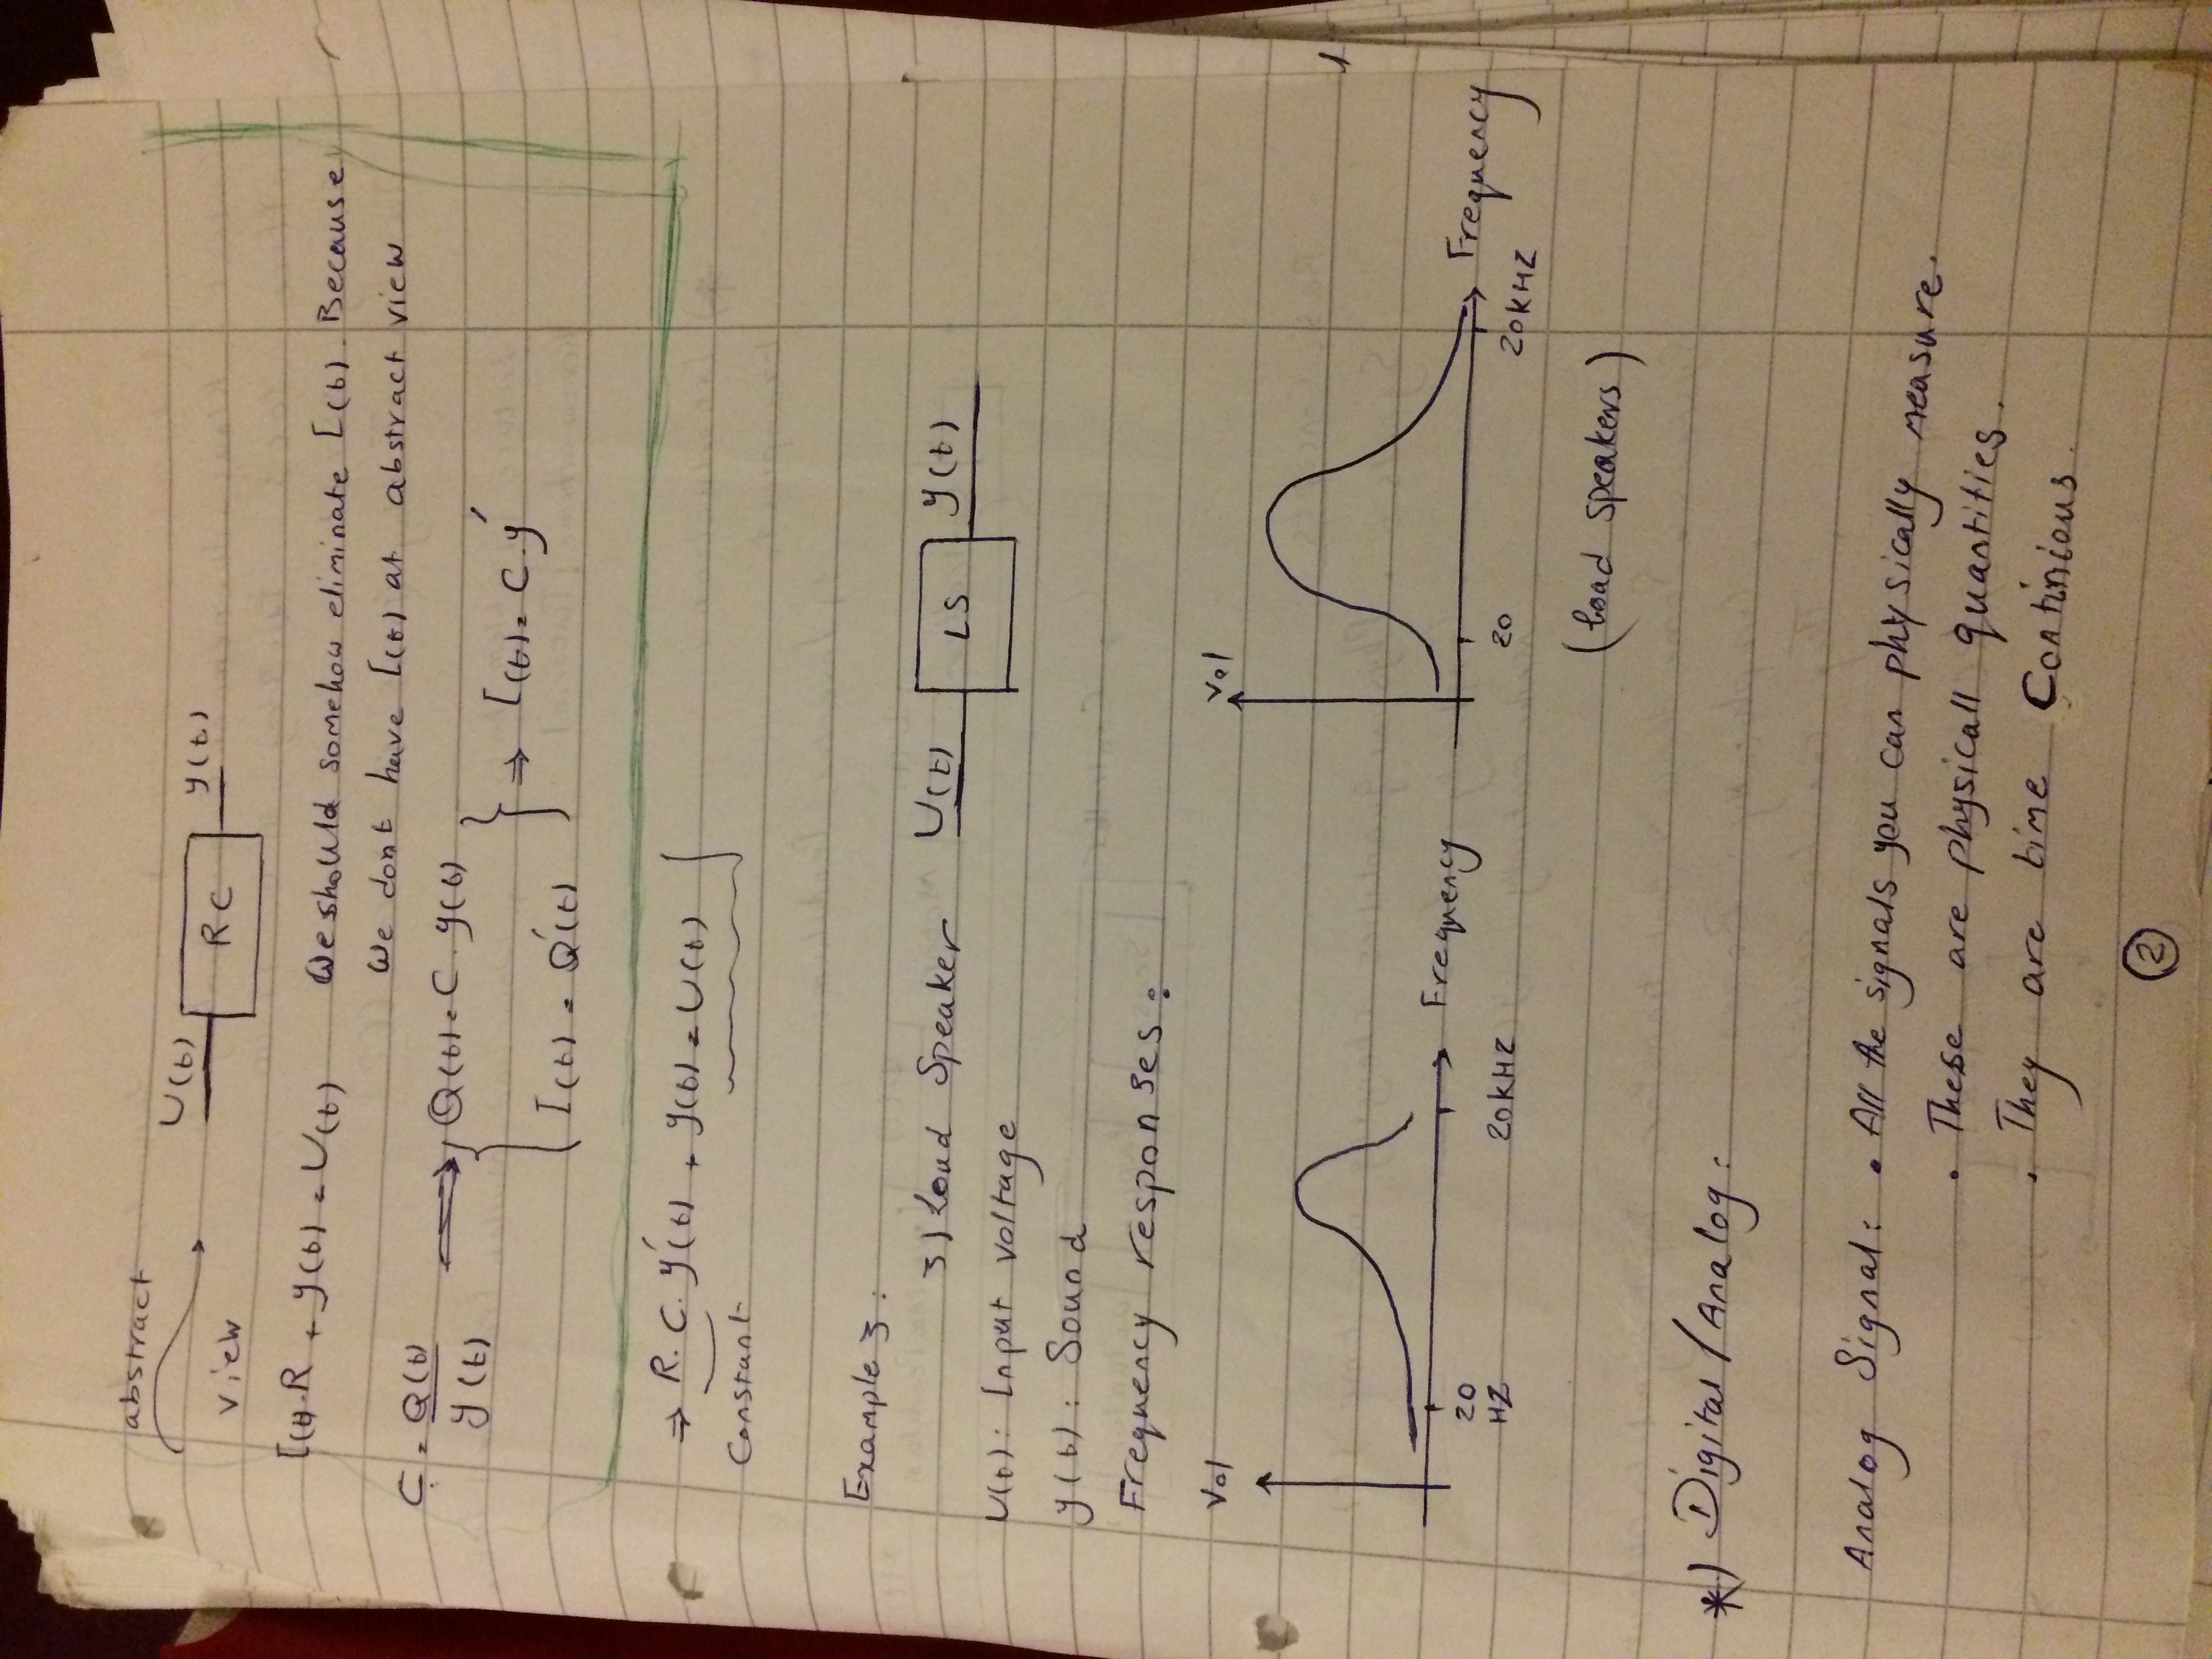 abstract
view
U(t) RC y(t)
I(t).R + y(t) = U(t) We should somehow eliminate I(t). Because
We dont have I(t) at abstract view
C = Q(t) / y(t) ⟹ { Q(t) = C. y(t)
I(t) = Q'(t) } ⇒ I(t) = C.y'
⇒ R. C. y'(t) + y(t) = U(t)
Constant
Example 3:
3) Loud Speaker U(t) LS y(t)
U(t): Input voltage
y(t): Sound
Frequency responses:
Vol
20
HZ
20KHZ
Frequency
Vol
20
20KHZ
Frequency
(load speakers)
*) Digital/Analog:
Analog Signal: • All the signals you can physically measure.
• These are physicall quantities.
• They are time Continious.
2